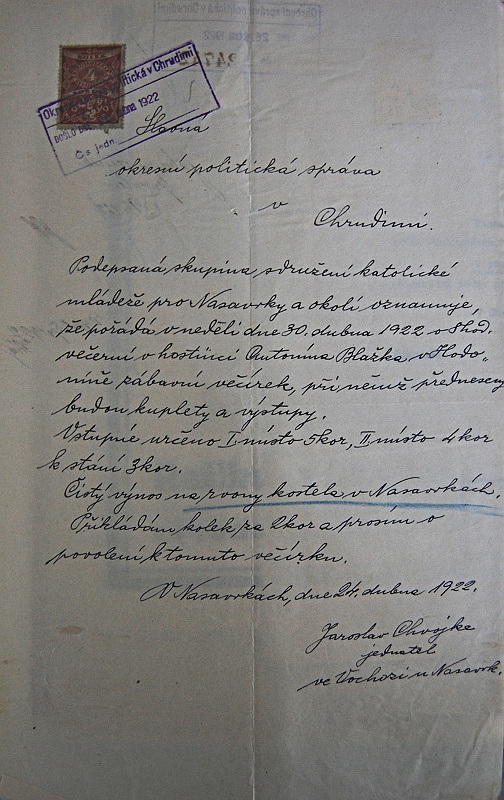 Okresní politická v Chrudimi
dubna 1922
Čís. jedn.
Slavná
okresní politická správa
v
Chrudimi.
Podepsaná skupina sdružení katolické
mládeže pro Nasavrky a okolí oznamuje,
že pořádá v neděli dne 30. dubna 1922 o 8 hod.
večerní v hostinci Antonína Blažka v Hodo-
níně zábavní večírek, při němž předneseny
budou kuplety a výstupy.
Vstupné určeno I. místo 5 kor, II. místo 4 kor
k stání 3 kor.
Čistý výnos na zvony kostela v Nasavrkách.
Přikládám kolek za 2 kor a prosím o
povolení k tomuto večírku.
V Nasavrkách, dne 24. dubna 1922.
Jaroslav Chvojka
jednatel
ve Vochozi u Nasavrk.